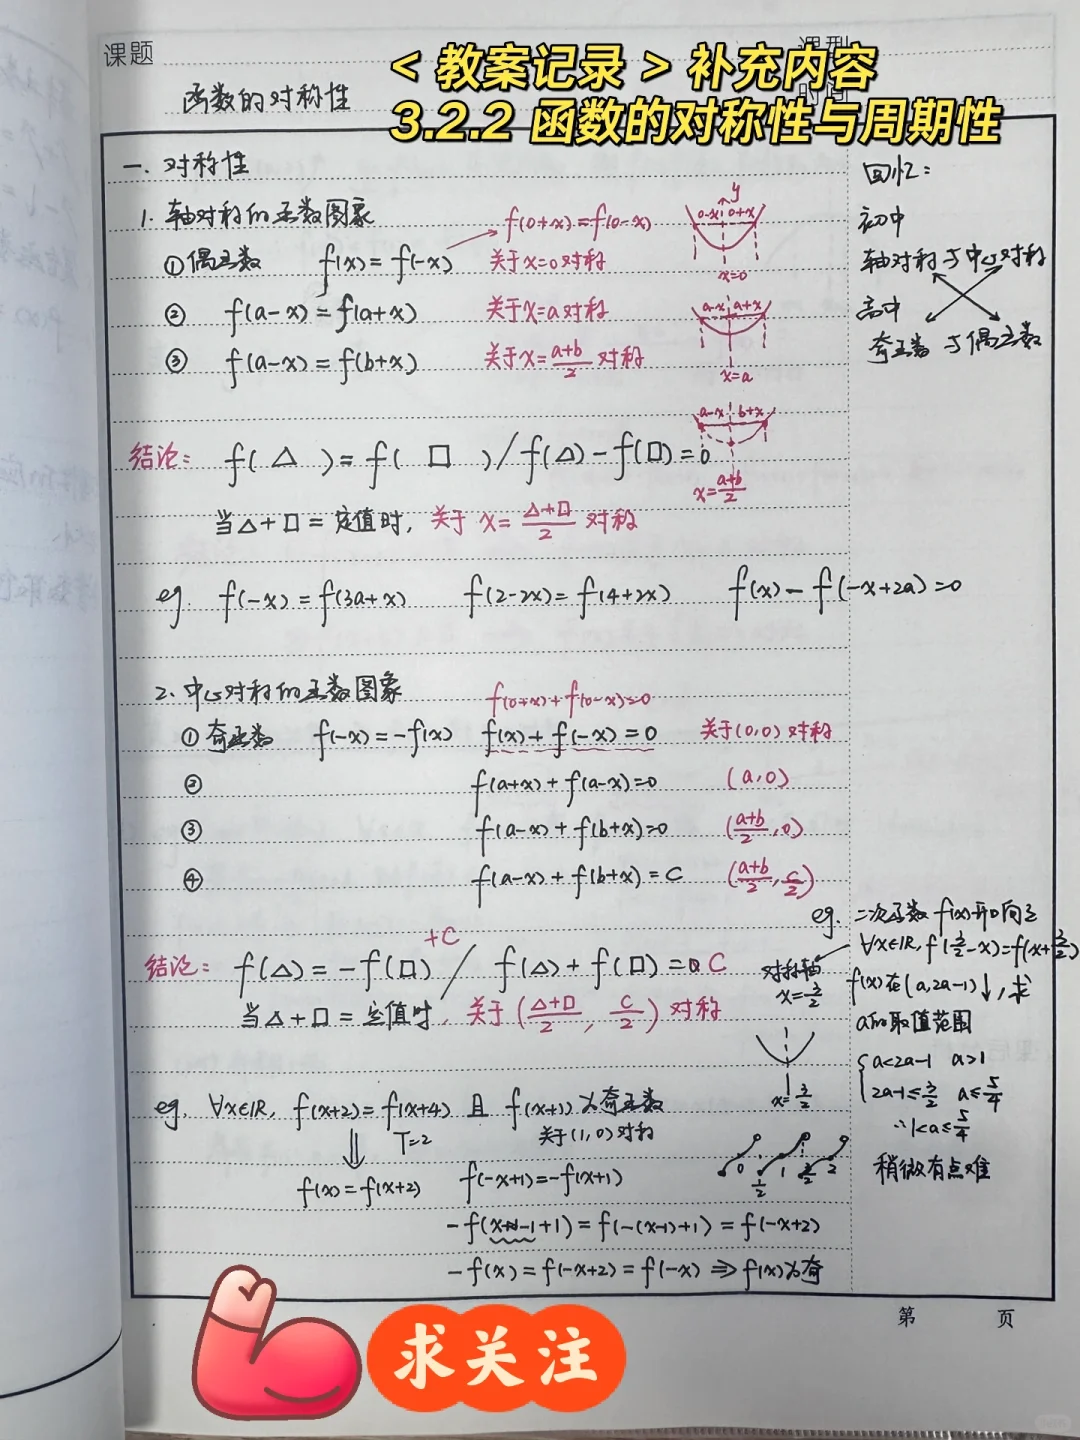 课题
课型
时间
<教案记录>补充内容
3.2.2 函数的对称性与周期性
函数的对称性
一. 对称性
1. 轴对称的函数图象
①偶函数 f(x)=f(-x)
f(0+x)=f(0-x)
关于x=0对称
0-x 0+x
y
x=0
② f(a-x)=f(a+x) 关于x=a对称
a-x a+x
x=a
③ f(a-x)=f(b+x) 关于x=(a+b)/2对称
a-x b+x
x=(a+b)/2
结论: f(△)=f(□)/f(△)-f(□)=0
当△+□=定值时, 关于 x=(△+□)/2 对称
eg. f(-x)=f(3a+x) f(2-2x)=f(4+2x) f(x)-f(-x+2a)=0
2. 中心对称的函数图象
f(0+x)+f(0-x)=0
①奇函数 f(-x)=-f(x) f(x)+f(-x)=0 关于(0,0)对称
② f(a+x)+f(a-x)=0 (a,0)
③ f(a-x)+f(b+x)=0 ((a+b)/2,0)
④ f(a-x)+f(b+x)=C ((a+b)/2,C/2)
结论: f(△)=-f(□)+C / f(△)+f(□)=0 C
当△+□=定值时, 关于((△+□)/2, C/2)对称
eg. ∀x∈R, f(x+2)=f(x+4) 且 f(x+1)为奇函数
T=2
关于(1,0)对称
f(x)=f(x+2) f(-x+1)=-f(x+1)
-f(x-1+1)=f(-(x-1)+1)=f(-x+2)
-f(x)=f(-x+2)=f(-x)⇒f(x)为奇
0 1/2 1 3/2 2
回忆:
初中
轴对称与中心对称
高中
奇函数与偶函数
eg. 二次函数f(x)开口向上
∀x∈R, f(3/2-x)=f(x+3/2)
对称轴
x=3/2
f(x)在(a,2a-1)↓,求
a的取值范围
x=3/2
a<2a-1 a>1
2a-1≤3/2 a≤5/4
∴1<a≤5/4
稍微有点难
第 页
求关注